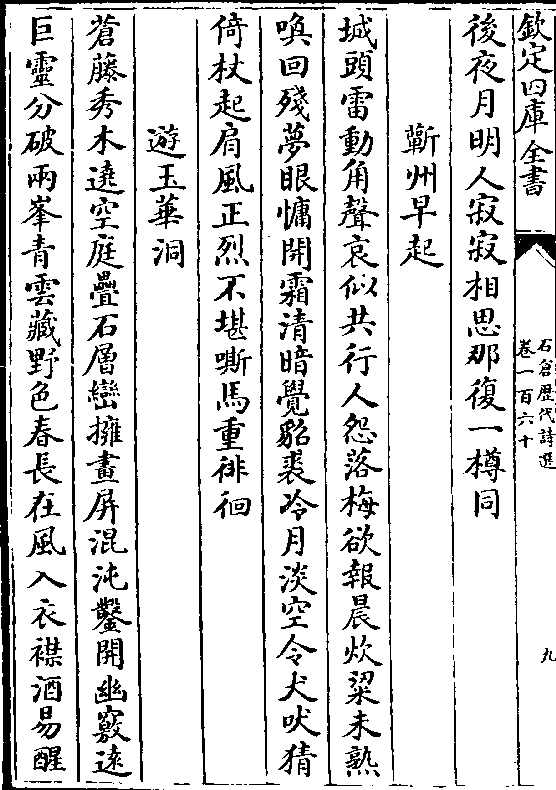 欽定四庫全書
石倉歷代詩選
卷一百六十
九
後夜月明人寂寂相思那復一樽同
蘄州早起
城頭雷動角聲哀似共行人怨落梅欲報晨炊粱未熟
喚回殘夢眼慵開霜清暗覺貂裘冷月淡空令犬吠猜
倚杖起肩風正烈不堪嘶馬重徘徊
遊玉華洞
蒼藤秀木遶空庭疊石層巒擁畫屏混沌鑿開幽竅遠
巨靈分破兩峯青雲藏野色春長在風入衣襟酒易醒